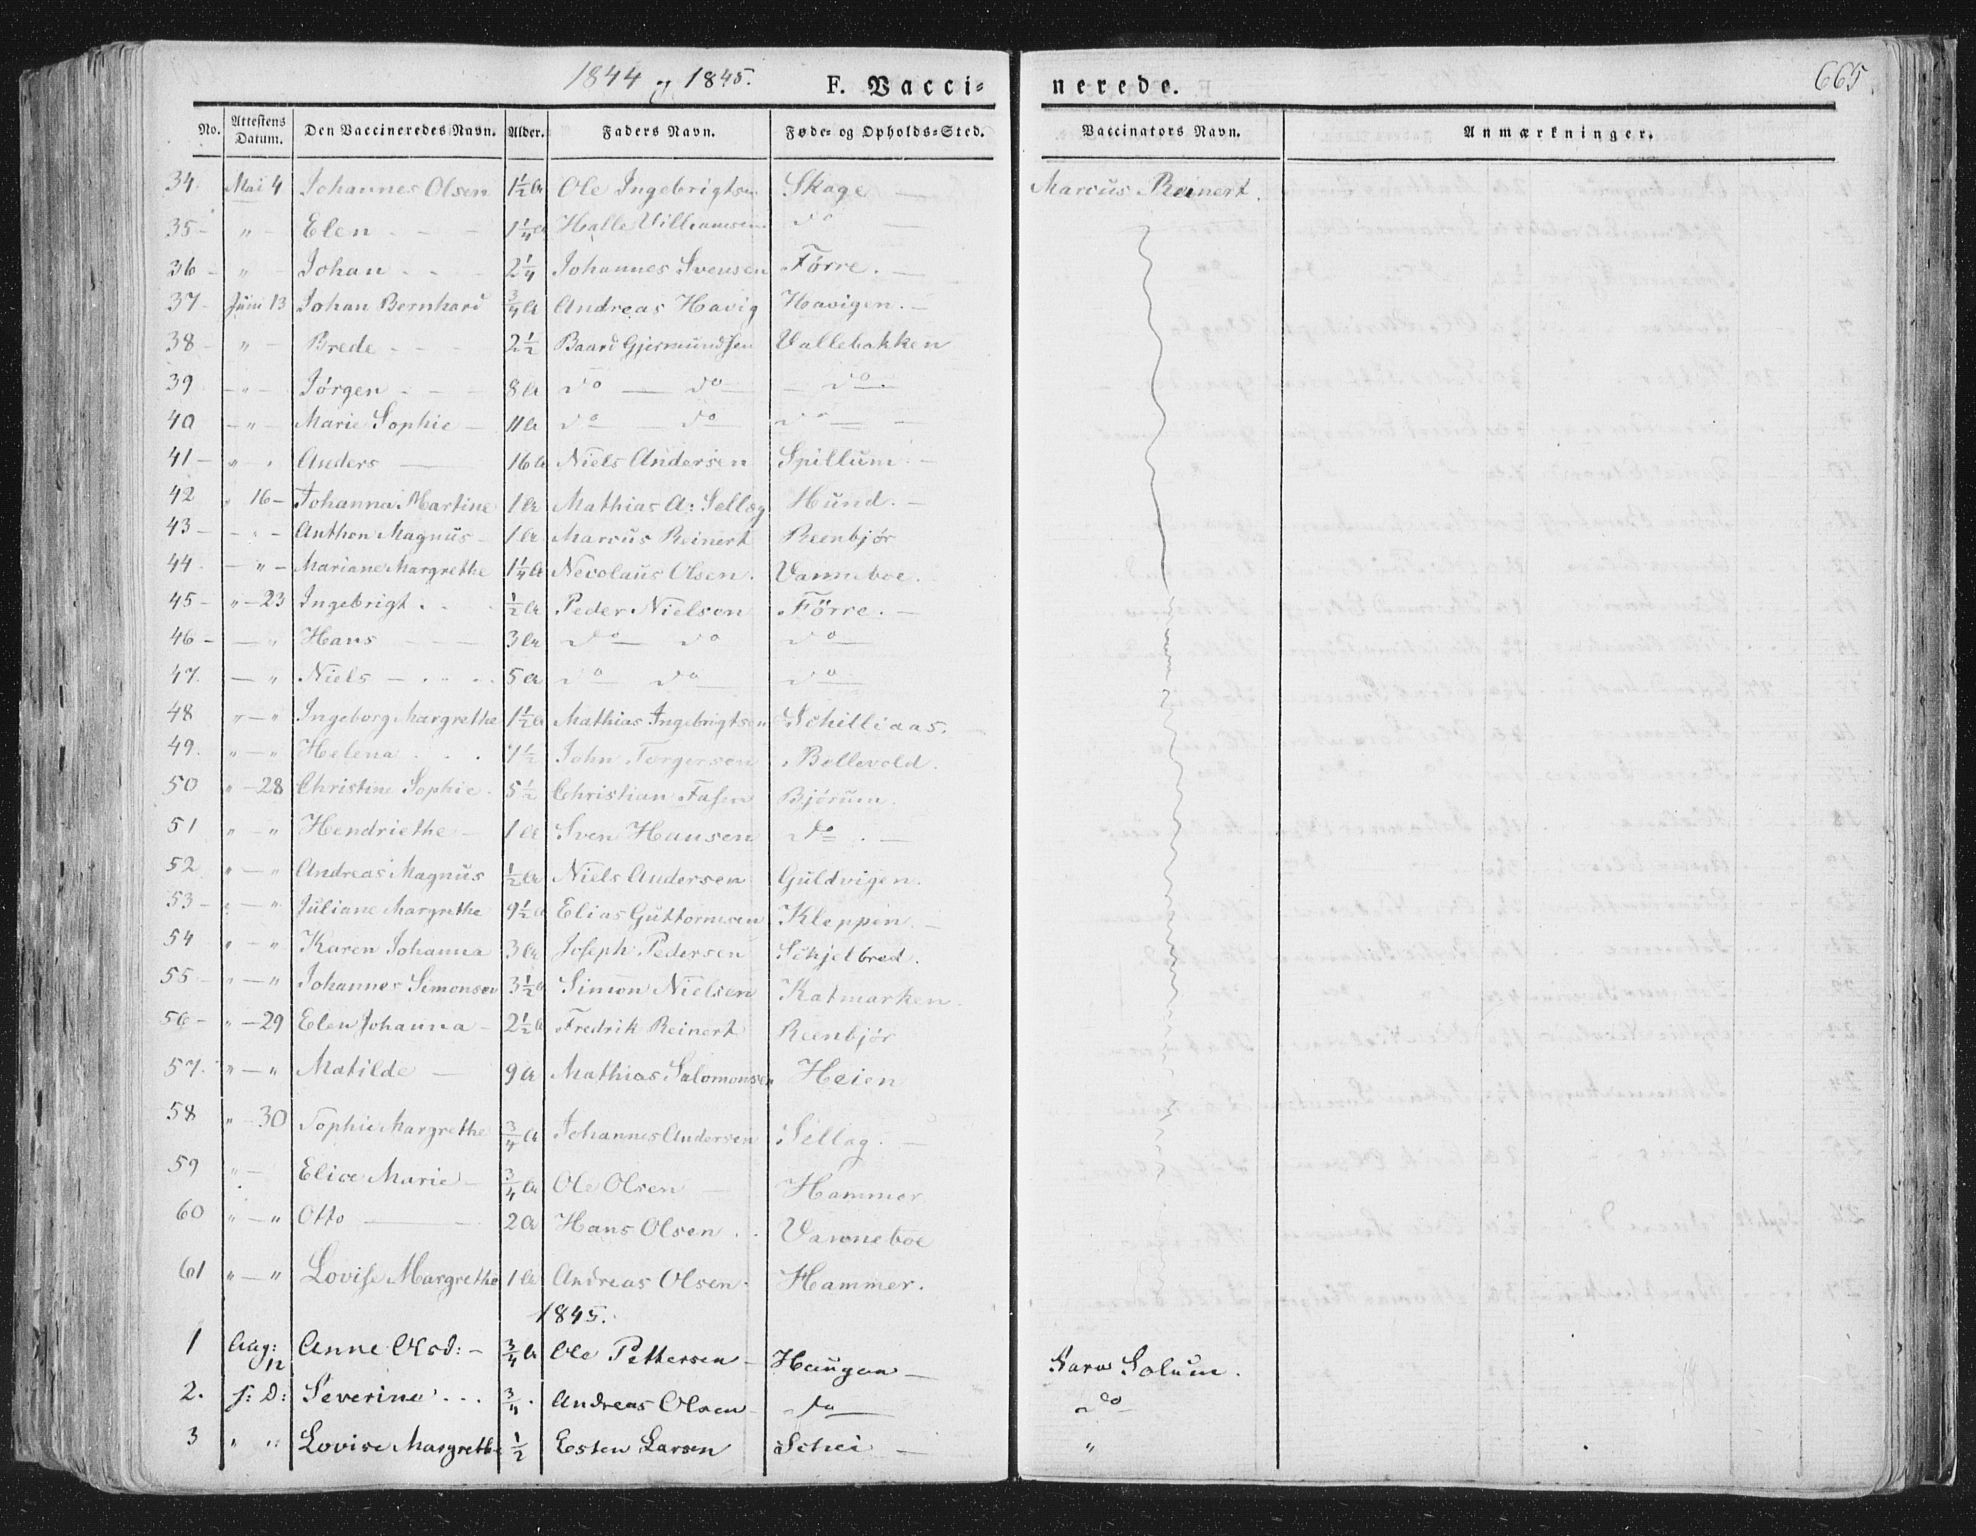 1844 og 1845. F. Vacci= nerede. 665
No. Attestens Datum. Den Vaccineredes Navn. Alder. Faders Navn. Føde= og Opholds=Sted. Vaccinators Navn. Anmærkninger.
34. Mai 4 Johannes Olsen 1½ a Ole Ingebrigtsen Skage — Marcus Reinert.
35 - " - Elen - - - 1¼ a Halle Villiamsen do —
36 - " - Johan - - - 2¼ Johannes Svensen Førre. —
37 - Juni 13 Johan Bernhard ¾ a Andreas Havig Havigen. —
38 - " - Brede - - - 2½ Baard Gjermundsen Vallebakken
39 - " - Jørgen - - - 8 a do — do — do.
40 - " - Marie Sophie — 11 a do — do do —
41 - " - Anders — 16 a Niels Andersen Spillum. —
42 " 16 - Johanna Martine 1 a Mathias A: Sellæg Hund. —
43 - " - Anthon Magnus - 1 a Marcus Reinert Reenbjør
44 - " - Mariane Margrethe 1¼ a Nevolaus Olsen. Vanneboe.
45 - " - 23 Ingebrigt . . . ½ a Peder Nielsen Førre. —
46 - — " Hans — — 3 a do — do do —
47. — " Niels — . . . 5 a do do do
48 " — " Ingeborg Margrethe 1½ a Mathias Ingebrigtsen Schilliaas. —
49. " — " Helena . . . 7½ John Torgersen Bellevold.
50 " — 28 Christine Sophie. 5½ Christian Fasen Bjørum.
51 " — " Hendriethe — 1 a Sven Hansen do . —
52 " — " Andreas Magnus ½ a Niels Andersen Guldvigen.
53 - " — " Juliane Margrethe 9½ a Elias Guttormsen Kleppen. —
54 " — " Karen Johanna 3 a Joseph Pedersen Schjelbred.
55 - " — " Johannes Simonsen 3½ a Simon Nielsen Katmarken.
56 - " — 29 Elen Johanna - 2½ a Fredrik Reinert Reenbjør
57. " — " Matilde — 9 a Mathias Salomonsen Heien
58 " — 30 Sophie Margrethe ¾ a Johannes Andersen Sellæg. —
59 " — Elice Marie — ¾ a Ole Olsen — Hammer
60 " — " Otto — 2 a Hans Olsen . . Vanneboe
61 " — " Lovise Margrethe 1 a Andreas Olsen. Hammer.
1845.
1 Aug: 12 Anne Olsd: — ¾ a Ole Pettersen — Haugan — Solum.
2. s: D: Severine . . . ¾ . Andreas Olsen — do — do
3 " " Lovise Margrethe ½ Esten Larsen Schei — "